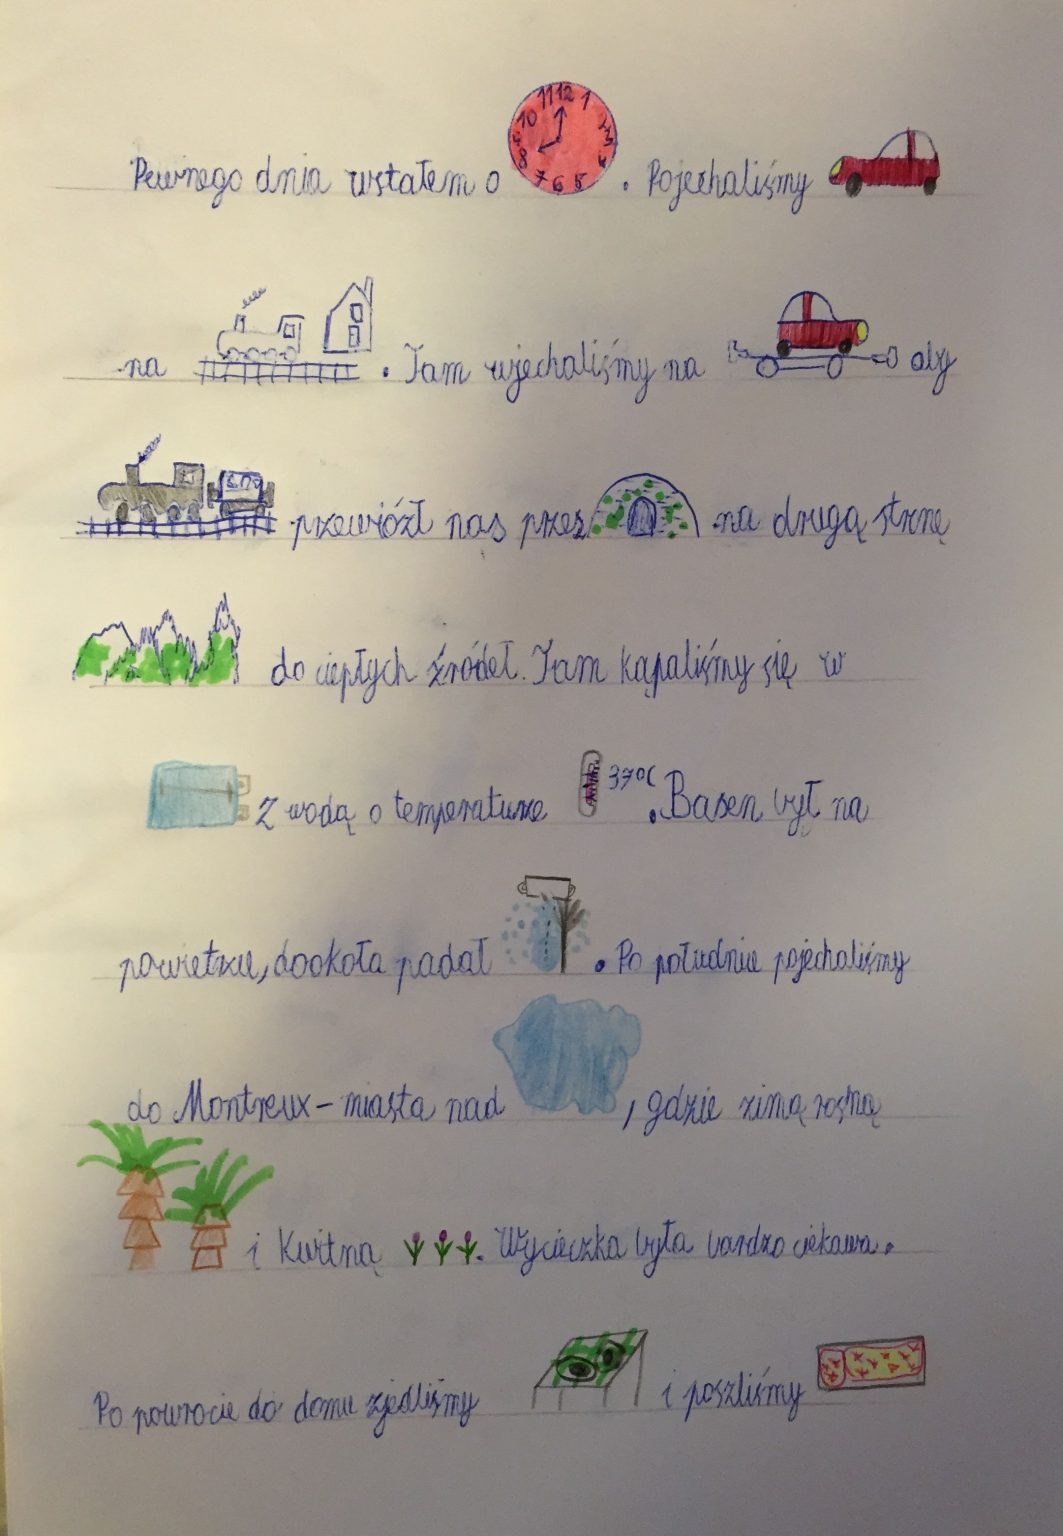 11 12 1
10
8
7 6 5
Pewnego dnia wstałem o . Pojechaliśmy
na . Tam wjechaliśmy na aby
przewiózł nas przez na drugą strnę
do ciepłych źródeł. Tam kąpaliśmy się w
z wodą o temperaturze 37°C . Basen był na
powietrzu, dookoła padał . Po południu pojechaliśmy
do Montreux - miasta nad , gdzie zimą rosną
i kwitną . Wycieczka była bardzo ciekawa.
Po powrocie do domu zjedliśmy i poszliśmy